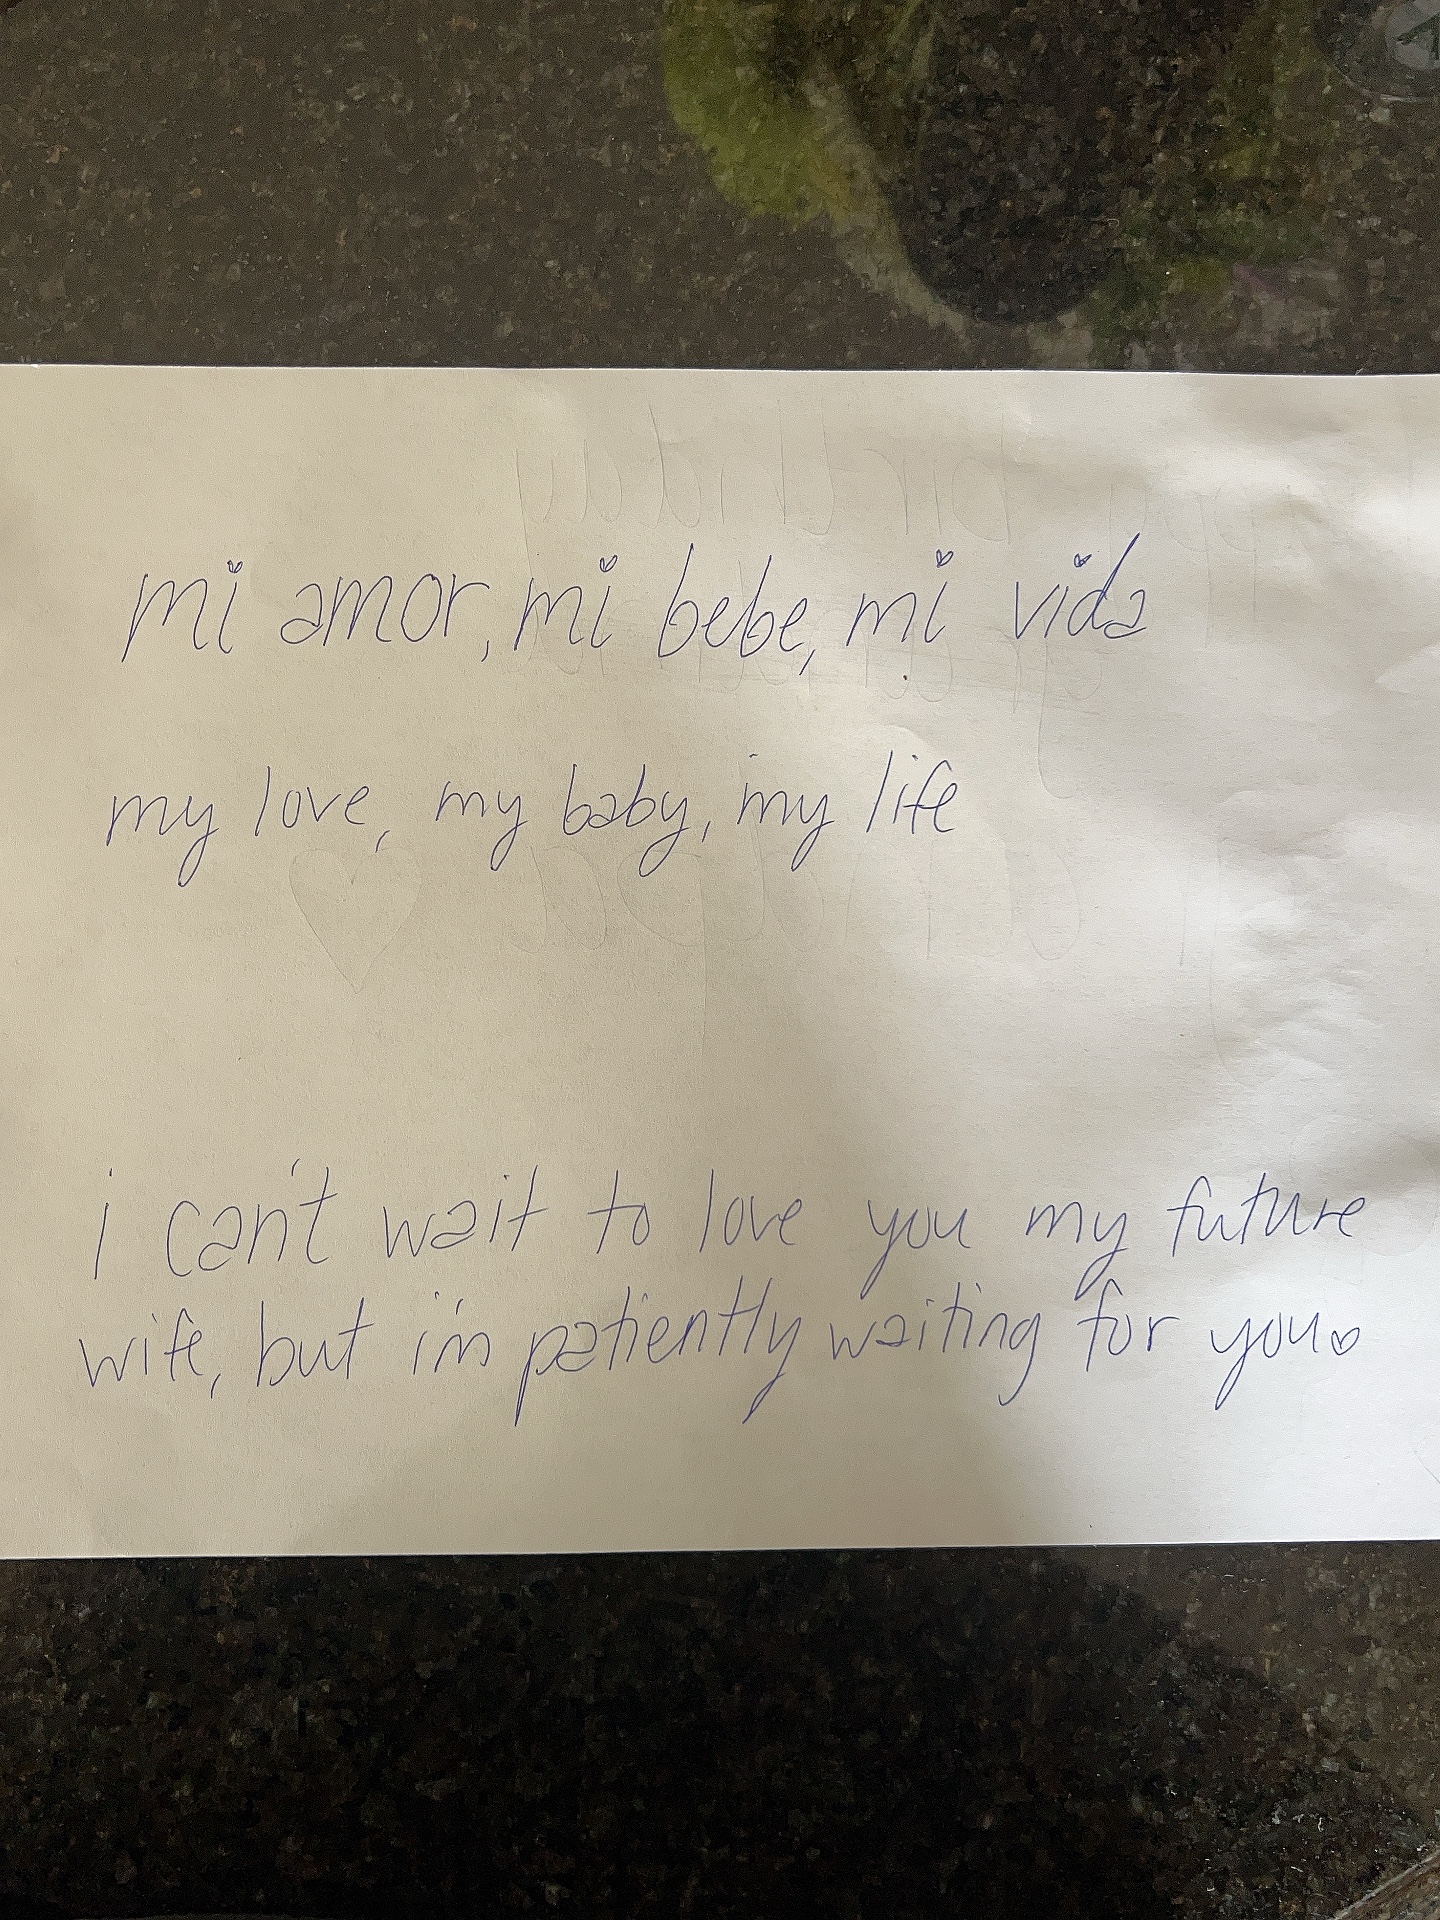 mi amor, mi bebe, mi vida
my love, my baby, my life
i can't wait to love you my future
wife, but i'm patiently waiting for you♥